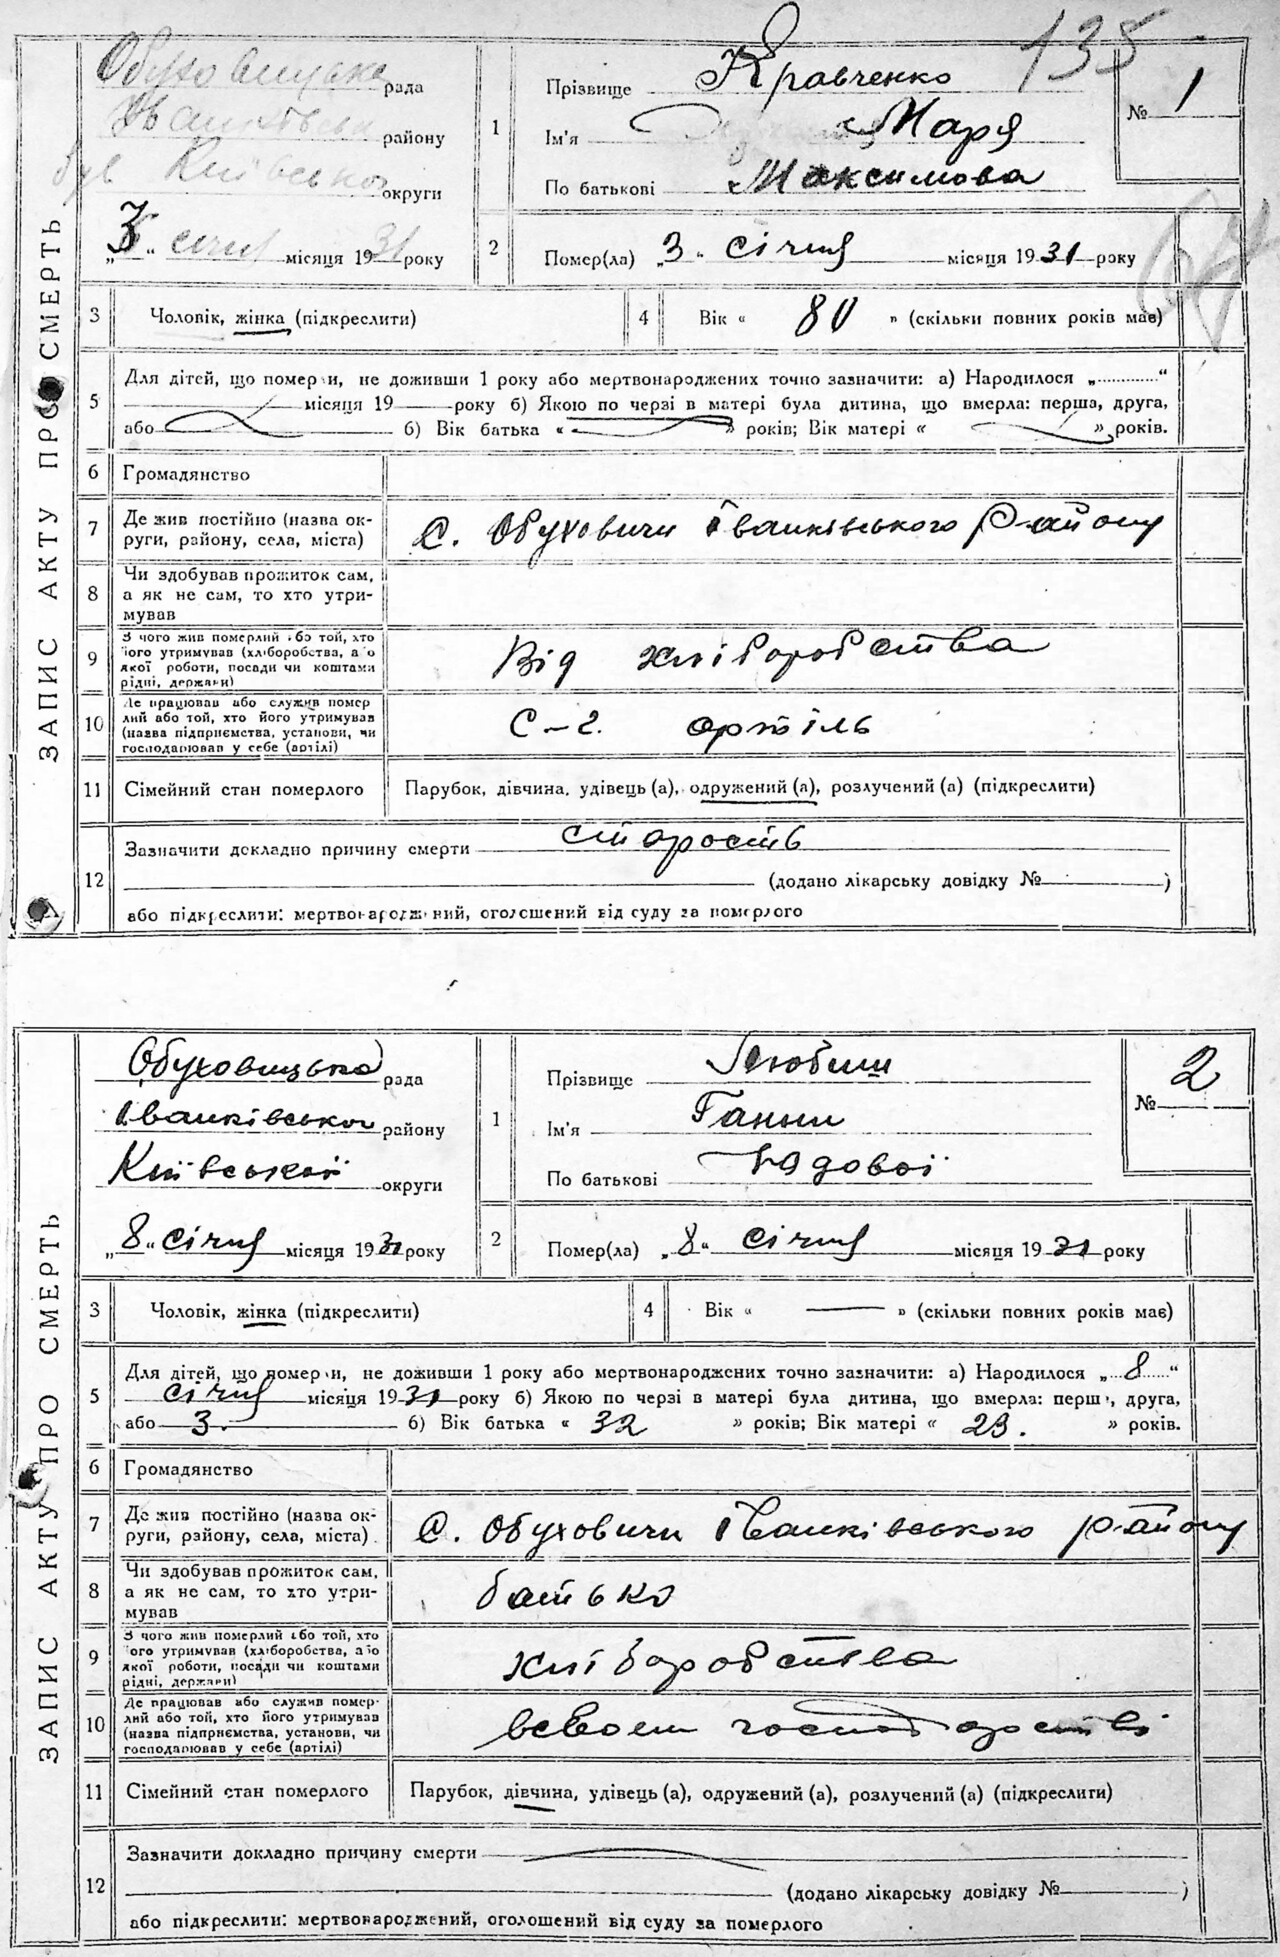 135
ЗАПИС АКТУ ПРО СМЕРТЬ
Обуховицька рада
Іванківськ району
Київсько округи
„3“ січня місяця 1931 року
1
Прізвище Кравченко
Ім'я Маря
По батькові Максимова
№ 1
2
Помер(ла) „3“ січня місяця 1931 року
3
Чоловік, жінка (підкреслити)
4
Вік « 80 » (скільки повних років має)
5
Для дітей, що померли, не доживши 1 року або мертвонароджених точно зазначити: а) Народилося „............“
місяця 19 року б) Якою по черзі в матері була дитина, що вмерла: перша, друга,
або б) Вік батька « » років; Вік матері « » років.
6
Громадянство
7
Де жив постійно (назва ок-
руги, району, села, міста)
С. Обуховичи Іванківського району
8
Чи здобував прожиток сам,
а як не сам, то хто утри-
мував
9
З чого жив померлий або той, хто
його утримував (хліборобства, або
якої роботи, посади чи коштами
рідні, держави)
Від хліборобства
10
Де працював або служив помер
лий або той, хто його утримував
(назва підприємства, установи, чи
господарював у себе (артілі)
С-г. артіль
11
Сімейний стан померлого
Парубок, дівчина, удівець (а), одружений (а), розлучений (а) (підкреслити)
12
Зазначити докладно причину смерти старость
(додано лікарську довідку № )
або підкреслити: мертвонароджений, оголошений від суду за померлого
ЗАПИС АКТУ ПРО СМЕРТЬ
Обуховицька рада
Іванківсько району
Київської округи
„8“ січня місяця 1931 року
1
Прізвище
Ім'я Ганни
По батькові
№ 2
2
Помер(ла) „8“ січня місяця 1931 року
3
Чоловік, жінка (підкреслити)
4
Вік « — » (скільки повних років має)
5
Для дітей, що померли, не доживши 1 року або мертвонароджених точно зазначити: а) Народилося „8“
січня місяця 1931 року б) Якою по черзі в матері була дитина, що вмерла: перша, друга,
або 3. б) Вік батька « 32 » років; Вік матері « 29. » років.
6
Громадянство
7
Де жив постійно (назва ок-
руги, району, села, міста)
С. Обуховичи Іванківського району
8
Чи здобував прожиток сам,
а як не сам, то хто утри-
мував
батько
9
З чого жив померлий або той, хто
його утримував (хліборобства, або
якої роботи, посади чи коштами
рідні, держави)
хліборобства
10
Де працював або служив помер-
лий або той, хто його утримував
(назва підприємства, установи, чи
господарював у себе (артілі)
всвоєм господарстві
11
Сімейний стан померлого
Парубок, дівчина, удівець (а), одружений (а), розлучений (а) (підкреслити)
12
Зазначити докладно причину смерти
(додано лікарську довідку № )
або підкреслити: мертвонароджений, оголошений від суду за померлого